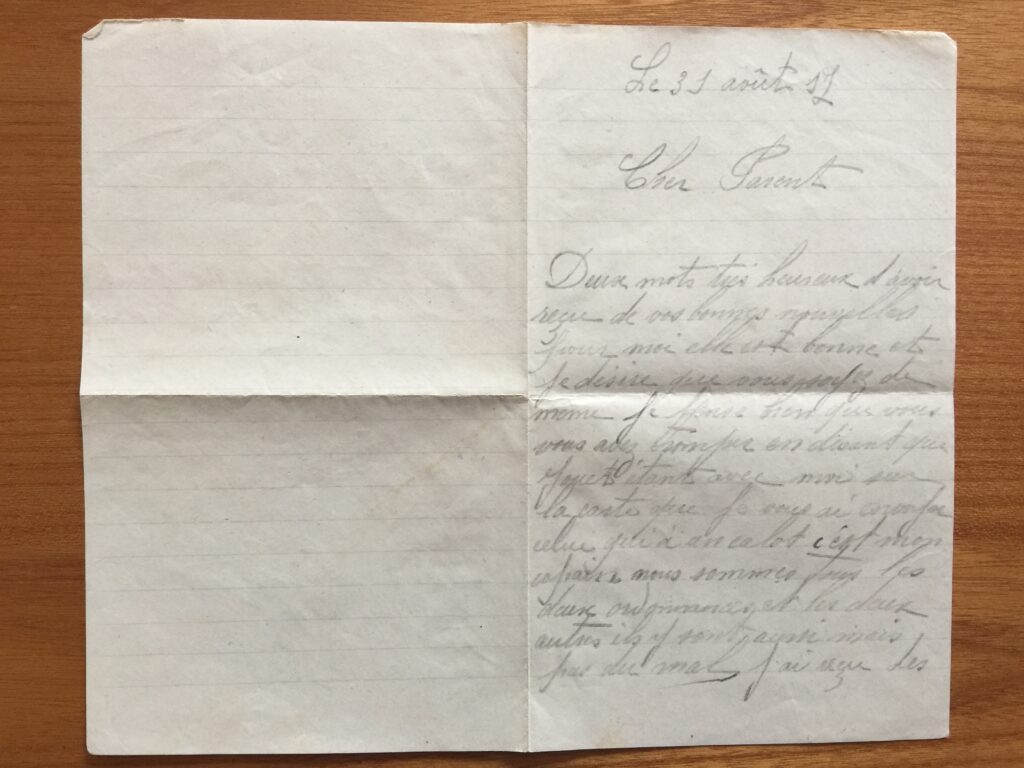 Le 31 août 17
Cher Parent
Deux mots très heureux d'avoir
reçu de vos bonnes nouvelles
pour moi elle est bonne et
je désire que vous soyez de
même Je pense bien que vous
vous avez trompé en disant que
était avec moi sur
la carte que je vous ai envoyé
celui qui à un calot c'est mon
copain nous sommes tous les
deux ordonnances et les deux
autres ils y sont aussi mais
pas du mal J'ai reçu des